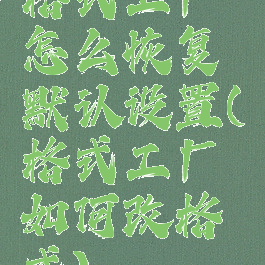 格式工厂
怎么恢复
默认设置(
格式工厂
如何改格
式)